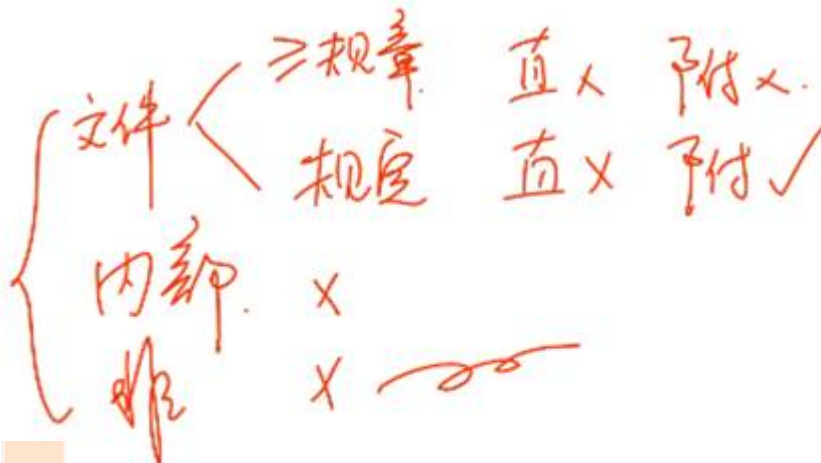 文件
≥规章 直× 附×.
规定 直× 附✓
内部. ×
非 ×